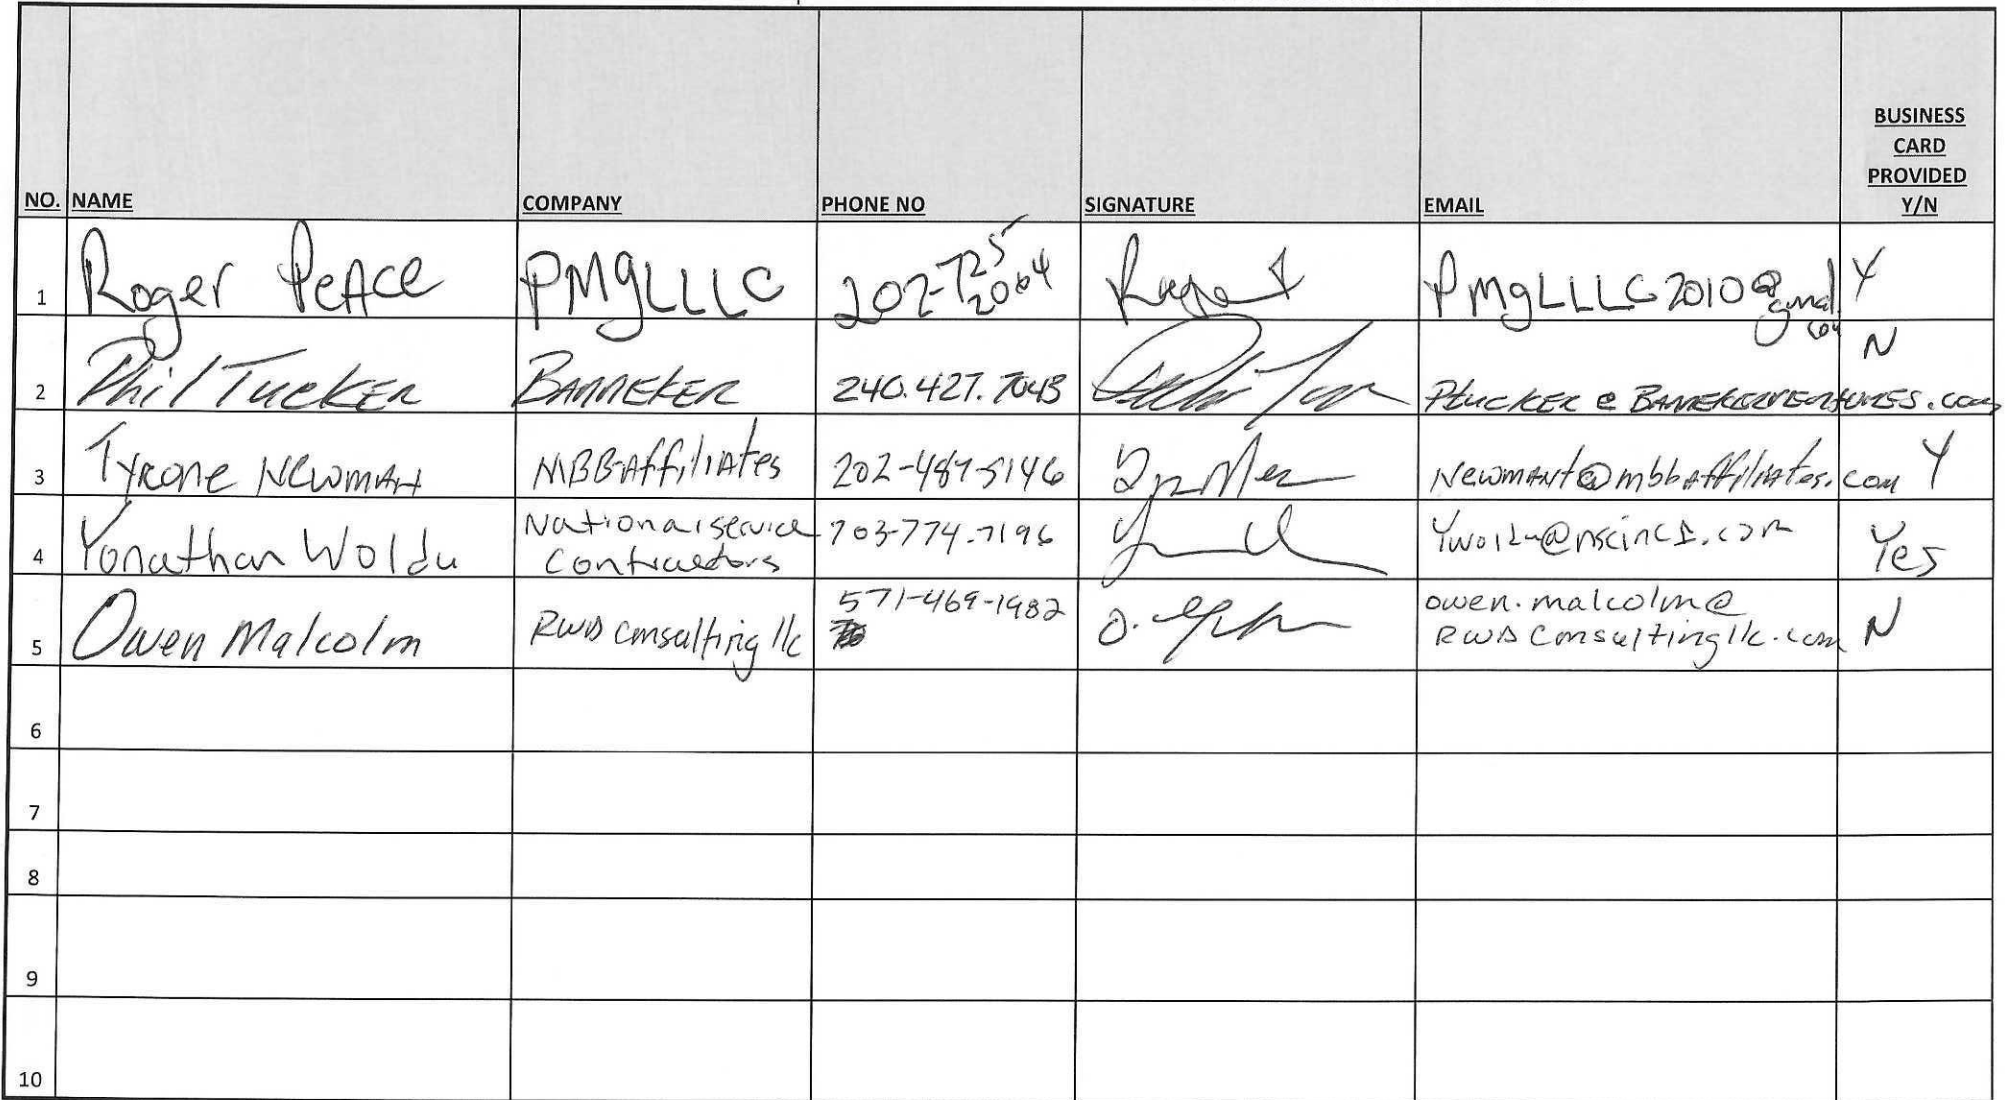 NO. NAME COMPANY PHONE NO SIGNATURE EMAIL BUSINESS CARD PROVIDED Y/N
1 Roger PeAce PMgLLLC 202-725 2064 PMgLLLC2010@gmail.com Y
2 Phil TUCKER BANNEKER 240.427.7043 N
3 Tyrone NewmAN MBBAffiliAtes 202-487-5146 NewmANt@mbbAffiliAtes.com Y
4 Yonathan Woldu National service Contractors 703-774-7196 Yes
5 Owen Malcolm RWD consulting llc 571-469-1982 owen.malcolm@ RWD Consultingllc.com N
6
7
8
9
10